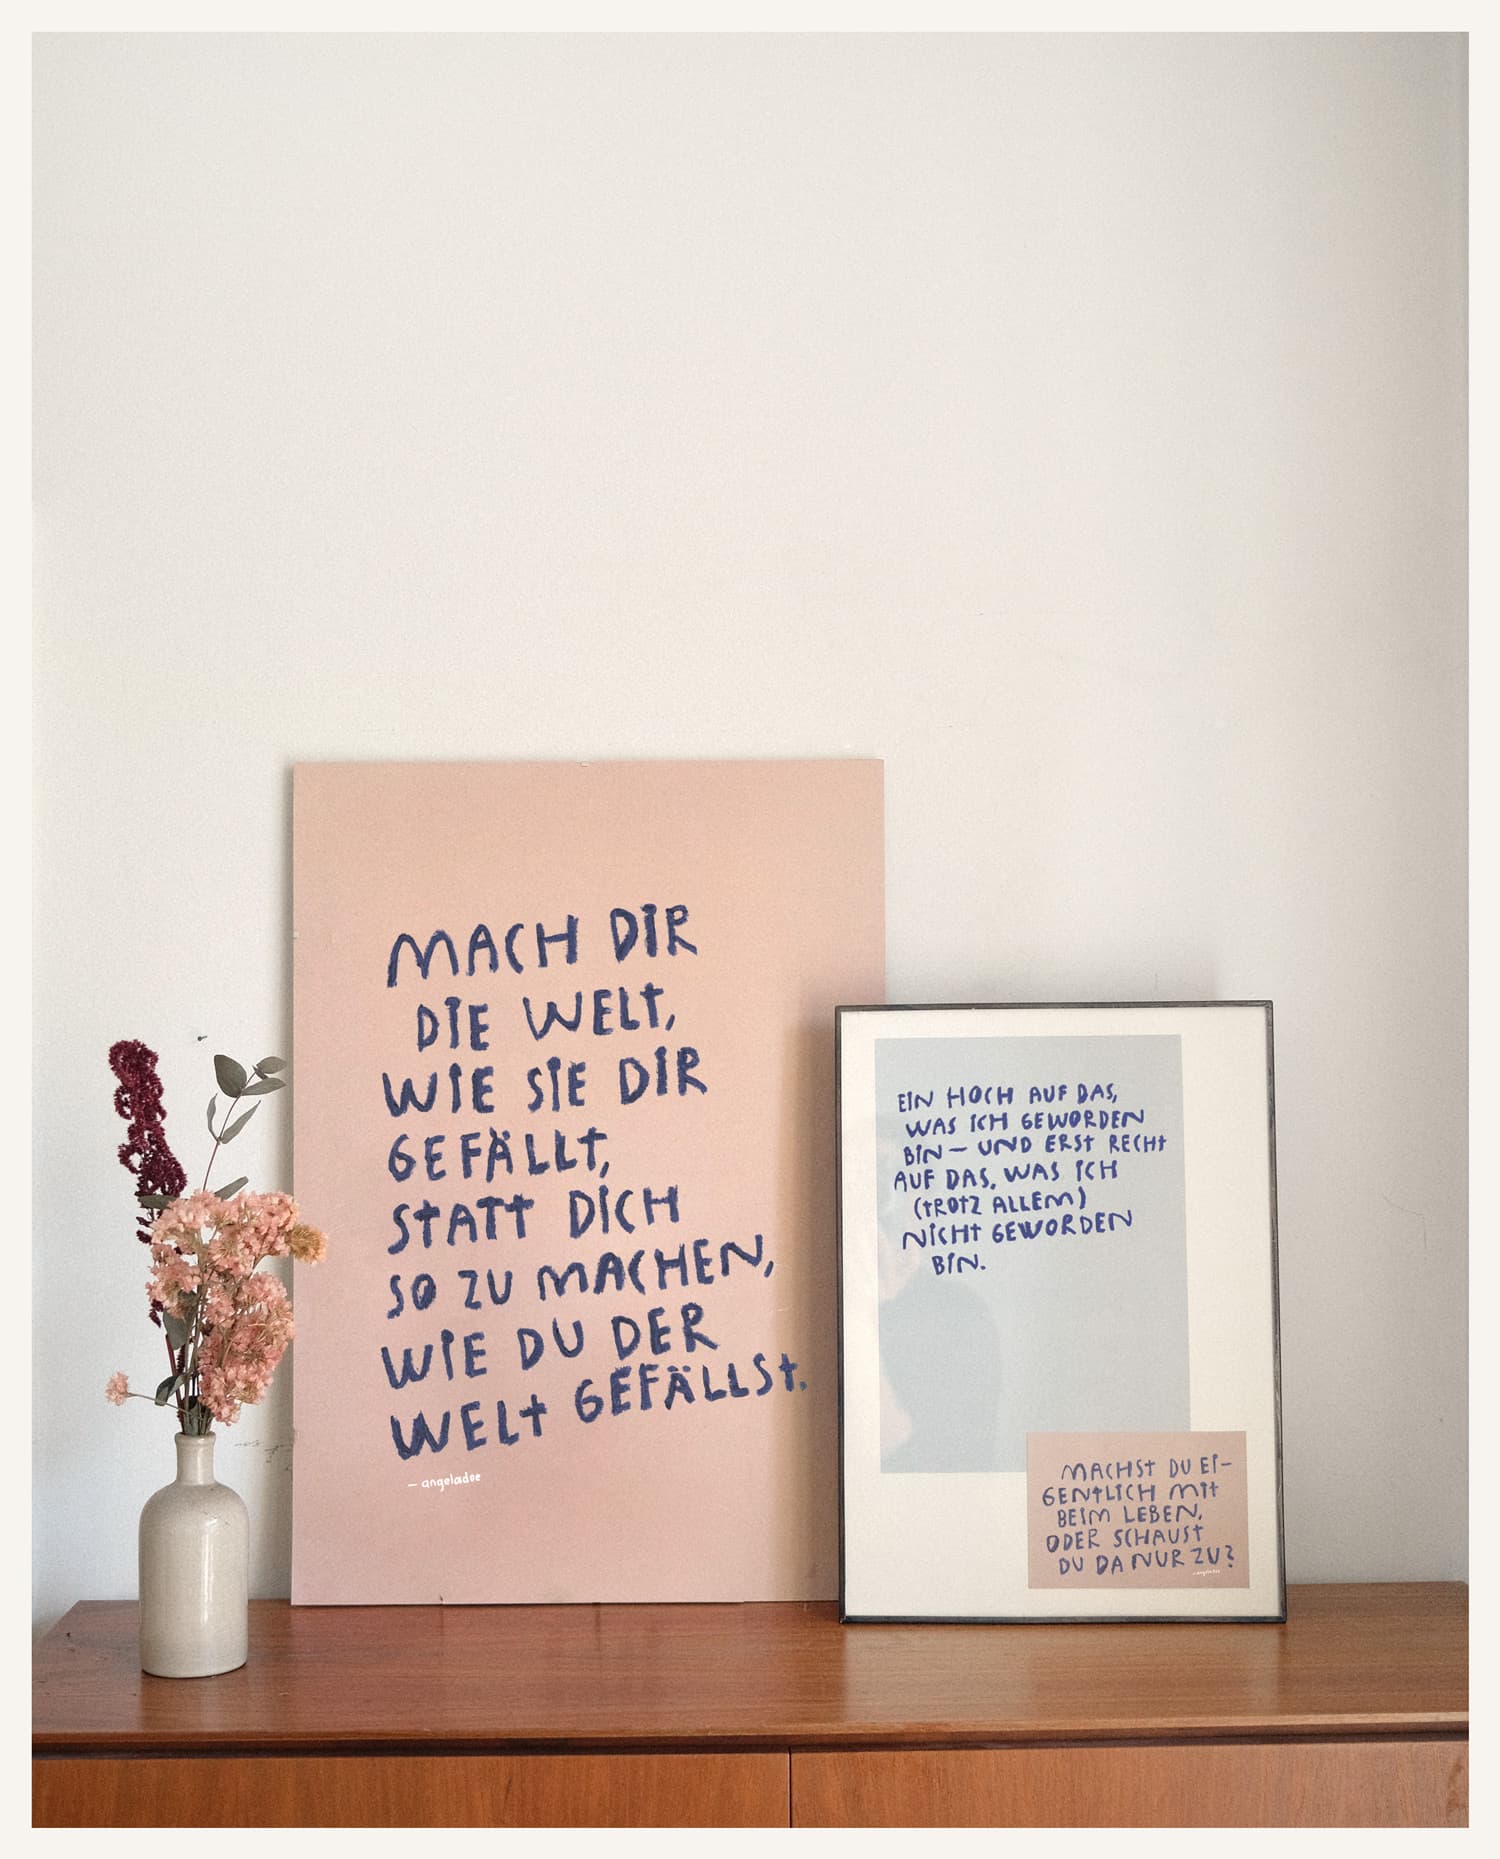 MACH DIR
DIE WELT,
WIE SIE DIR
GEFÄLLT,
STATT DICH
SO ZU MACHEN,
WIE DU DER
WELT GEFÄLLST.
– angeladoe
EIN HOCH AUF DAS,
WAS ICH GEWORDEN
BIN – UND ERST RECHT
AUF DAS, WAS ICH
(TROTZ ALLEM)
NICHT GEWORDEN
BIN.
MACHST DU EI-
GENTLICH MIT
BEIM LEBEN,
ODER SCHAUST
DU DA NUR ZU?
– angeladoe